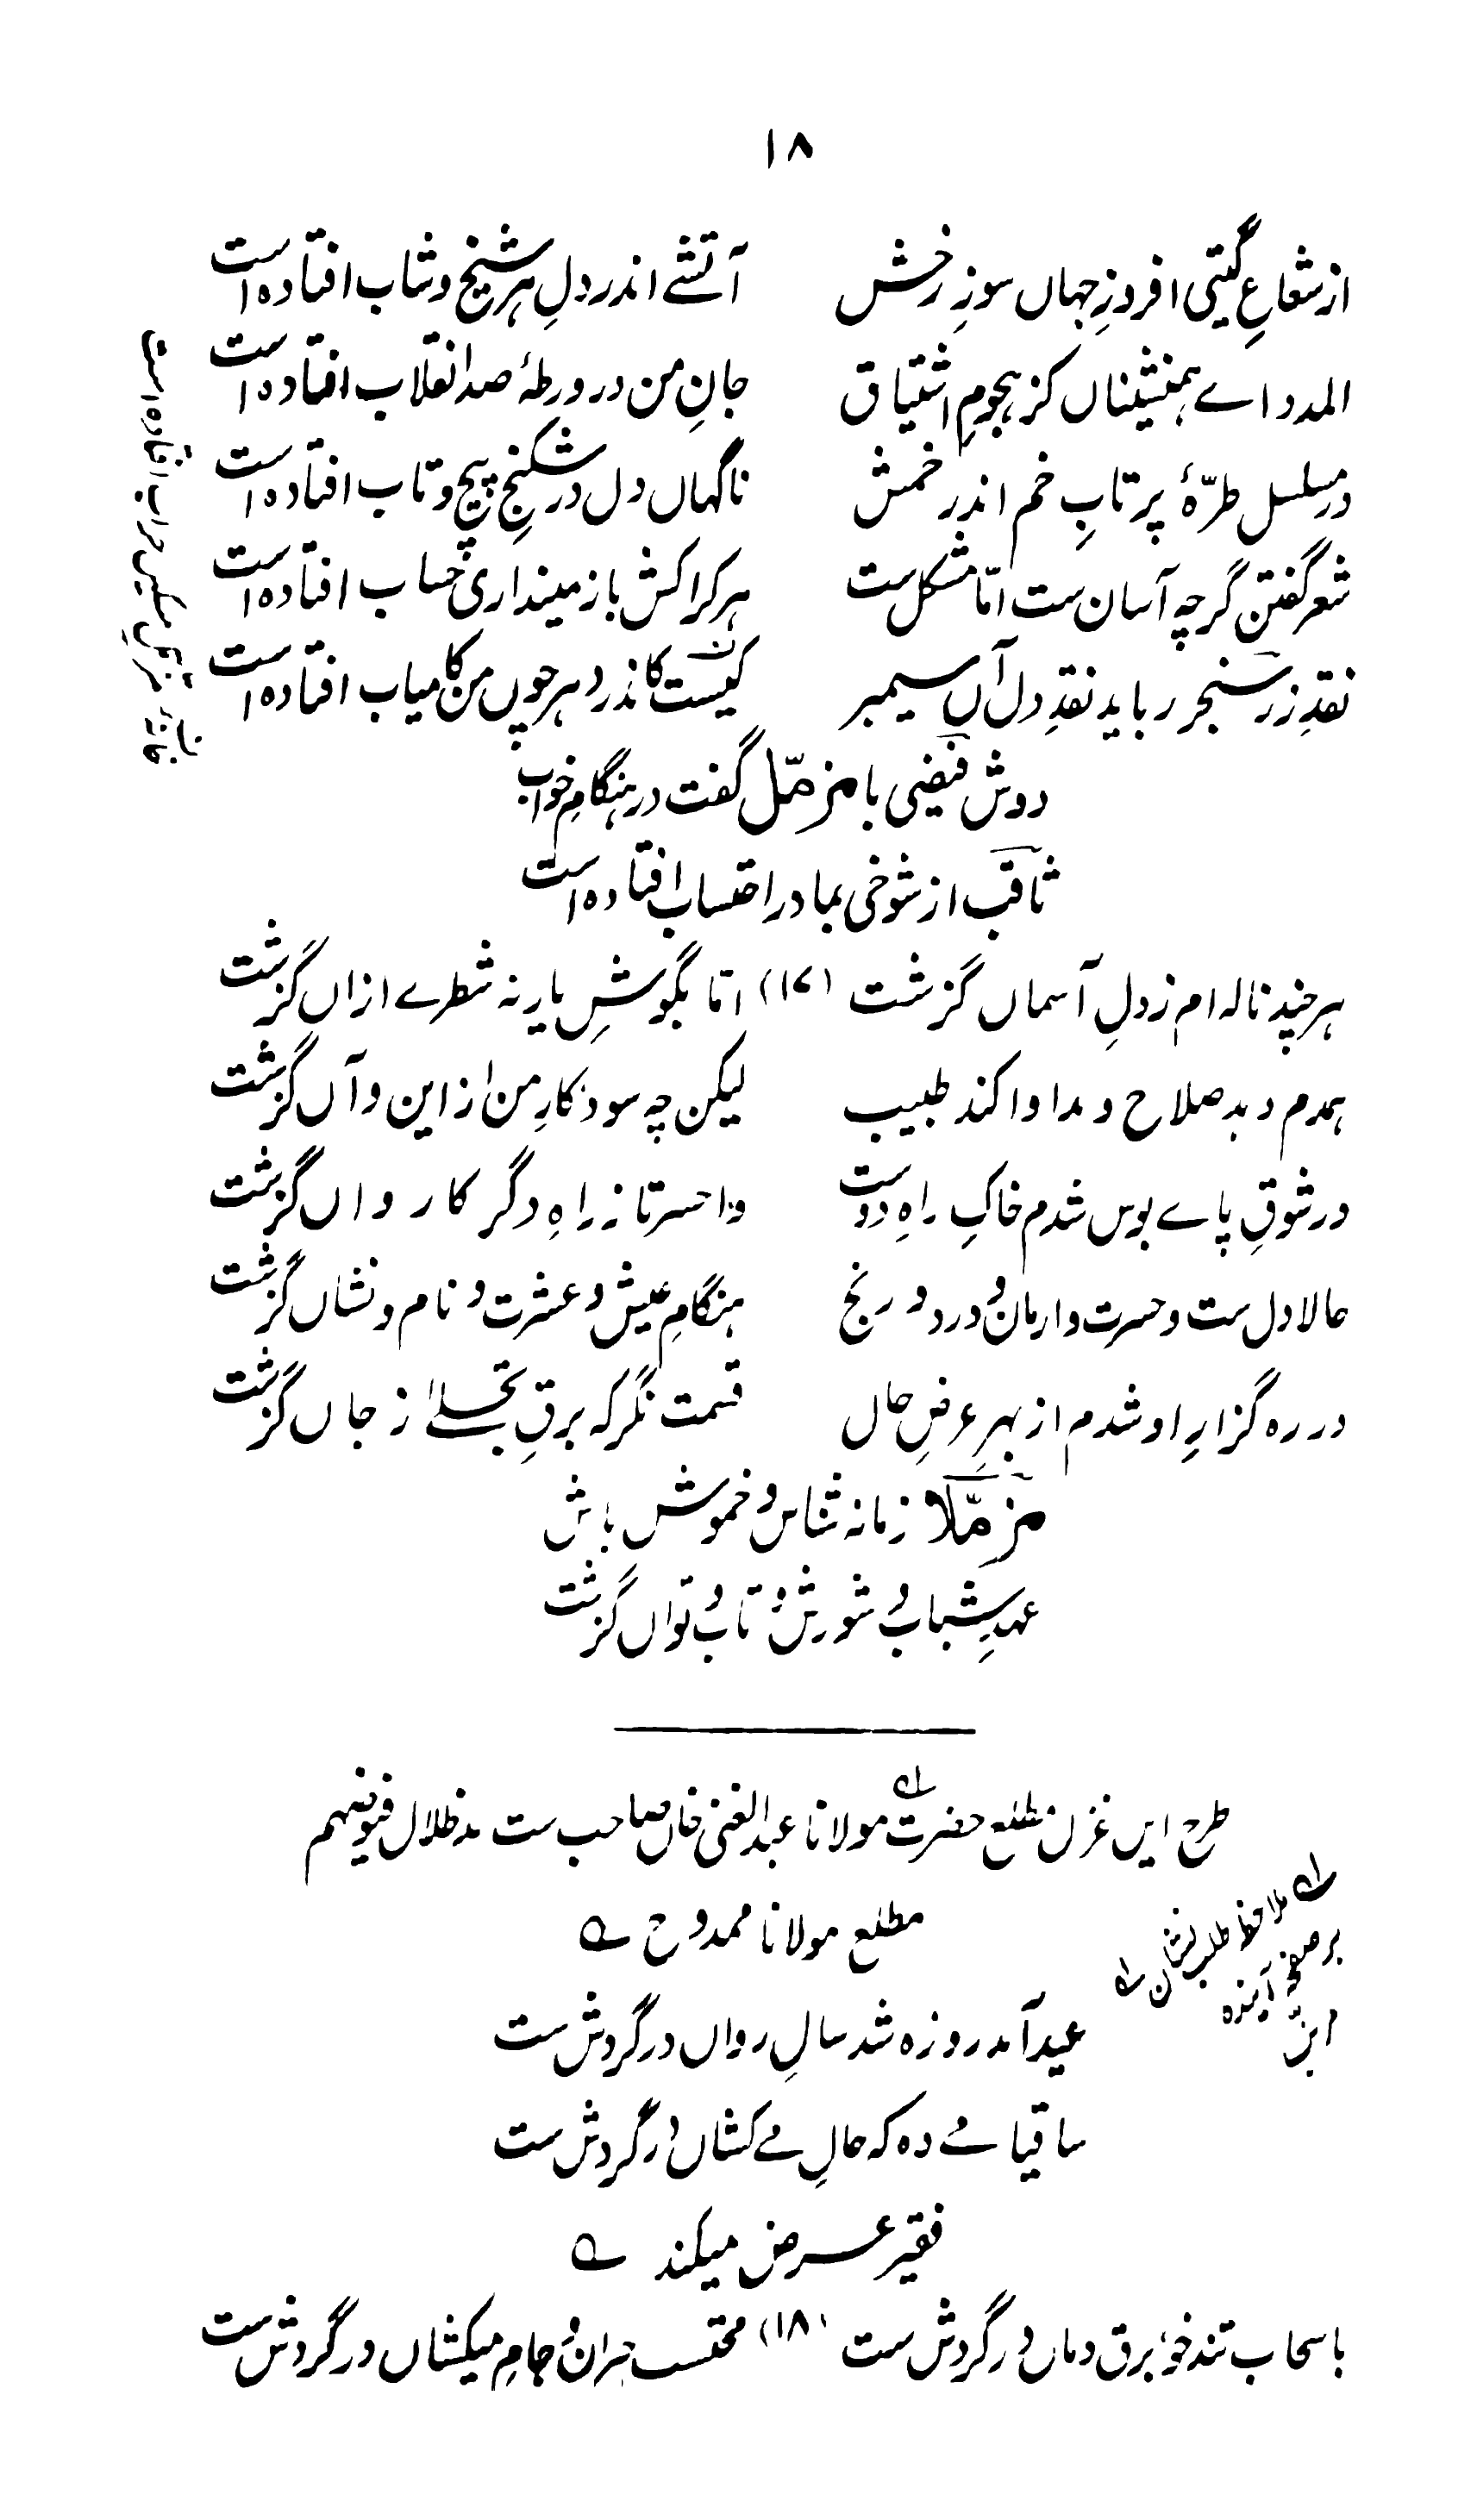 ۱۸
از شعاعِ گیتی افروزِ جہاں سوزِ رخش آتشے اندر دلِ ہر شیخ و شاب افتادہ است
المدد اے ہمنشیناں کز ہجومِ اشتیاق جانِ من در ورطۂ صد انقلاب افتادہ است
در مسلسل طرّۂ پرتابِ خم اندر خمش ناگہاں دل در شکنجِ پیچ و تاب افتادہ است
شعر گفتن گرچہ آسان ست امّا مشکل ست ہر کرا کش باز مینداری حساب افتادہ است
نقدِ زر سنجر رباید نقدِ دل آں سیمبر کیست کاندر دہر چوں من کامیاب افتادہ است
دوش فیضی با مزمّل گفت در ہنگامِ خواب
ثاقب از شوخی مبادر احتساب افتادہ است
ہر چند نالہ ام ز دلِ آسماں گزشت (۱۷) امّا بگوشِ یار نہ شطرے ازاں گزشت
ہمدم دہد صلاح و مداوا کند طبیب لیکن چہ سود کارِ من از این و آں گزشت
در شوقِ پاے بوس شدم خاکِ راہِ دوست واحسرتا ز راہِ دگر کارواں گزشت
حالا دل ست و حسرت و ارمان و درد و رنج ہنگامِ عیش و عشرت و نام و نشاں گزشت
در رہ گزارِ او شدم از بہرِ عرضِ حال قسمت نگر کہ برقِ تجلیٰ ز جاں گزشت
مزمّلا زمانہ شناس و خموش باش
عہدِ شباب و شورش و تاب و تواں گزشت
طرح ایں غزل مطلع حضرت مولانا عبد الغنی خاں صاحب ست مد ظلال فیوضہم
مطلع مولانا ممدوح ؎
عید آمد روزہ شد سالِ رواں در گردش ست
ساقیا مے دہ کہ حالِ مے کشاں در گردش ست
فقیر عرض میکند ؎
با سحاب تند خو برق دماں در گردش ست (۱۸) محتسب حیران و جامِ میکشاں در گردش ست